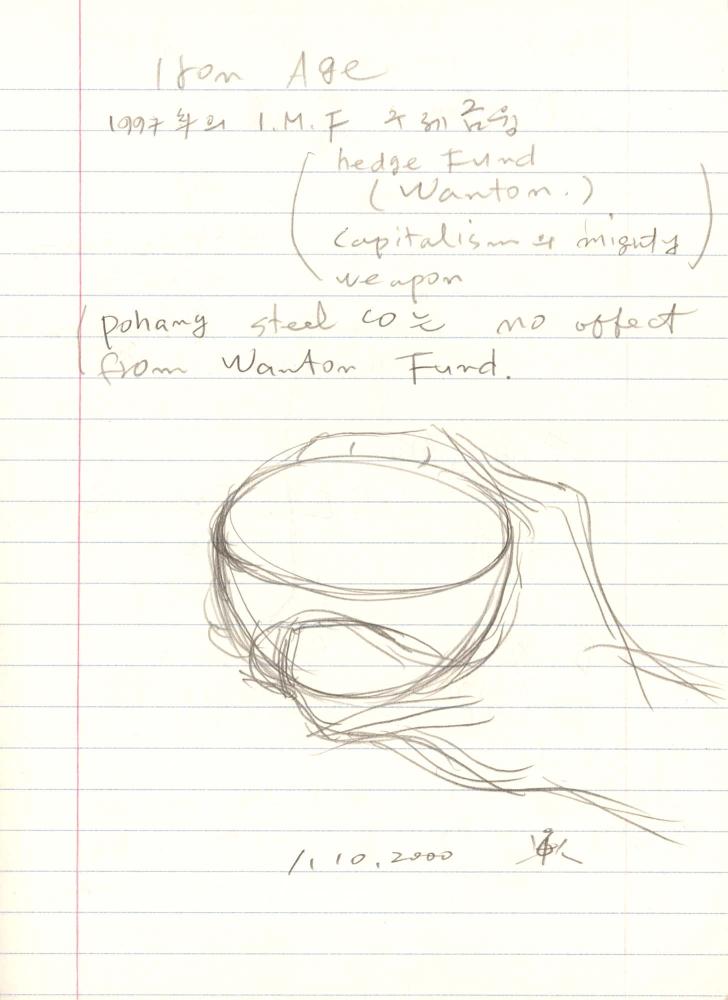 Iron Age
1997年의 I.M.F 구제금융
( hedge Fund
( Wanton. )
capitalism의 mighty )
weapon
( pohang steel co는 no offect
from Wanton Fund.
1. 10. 2000